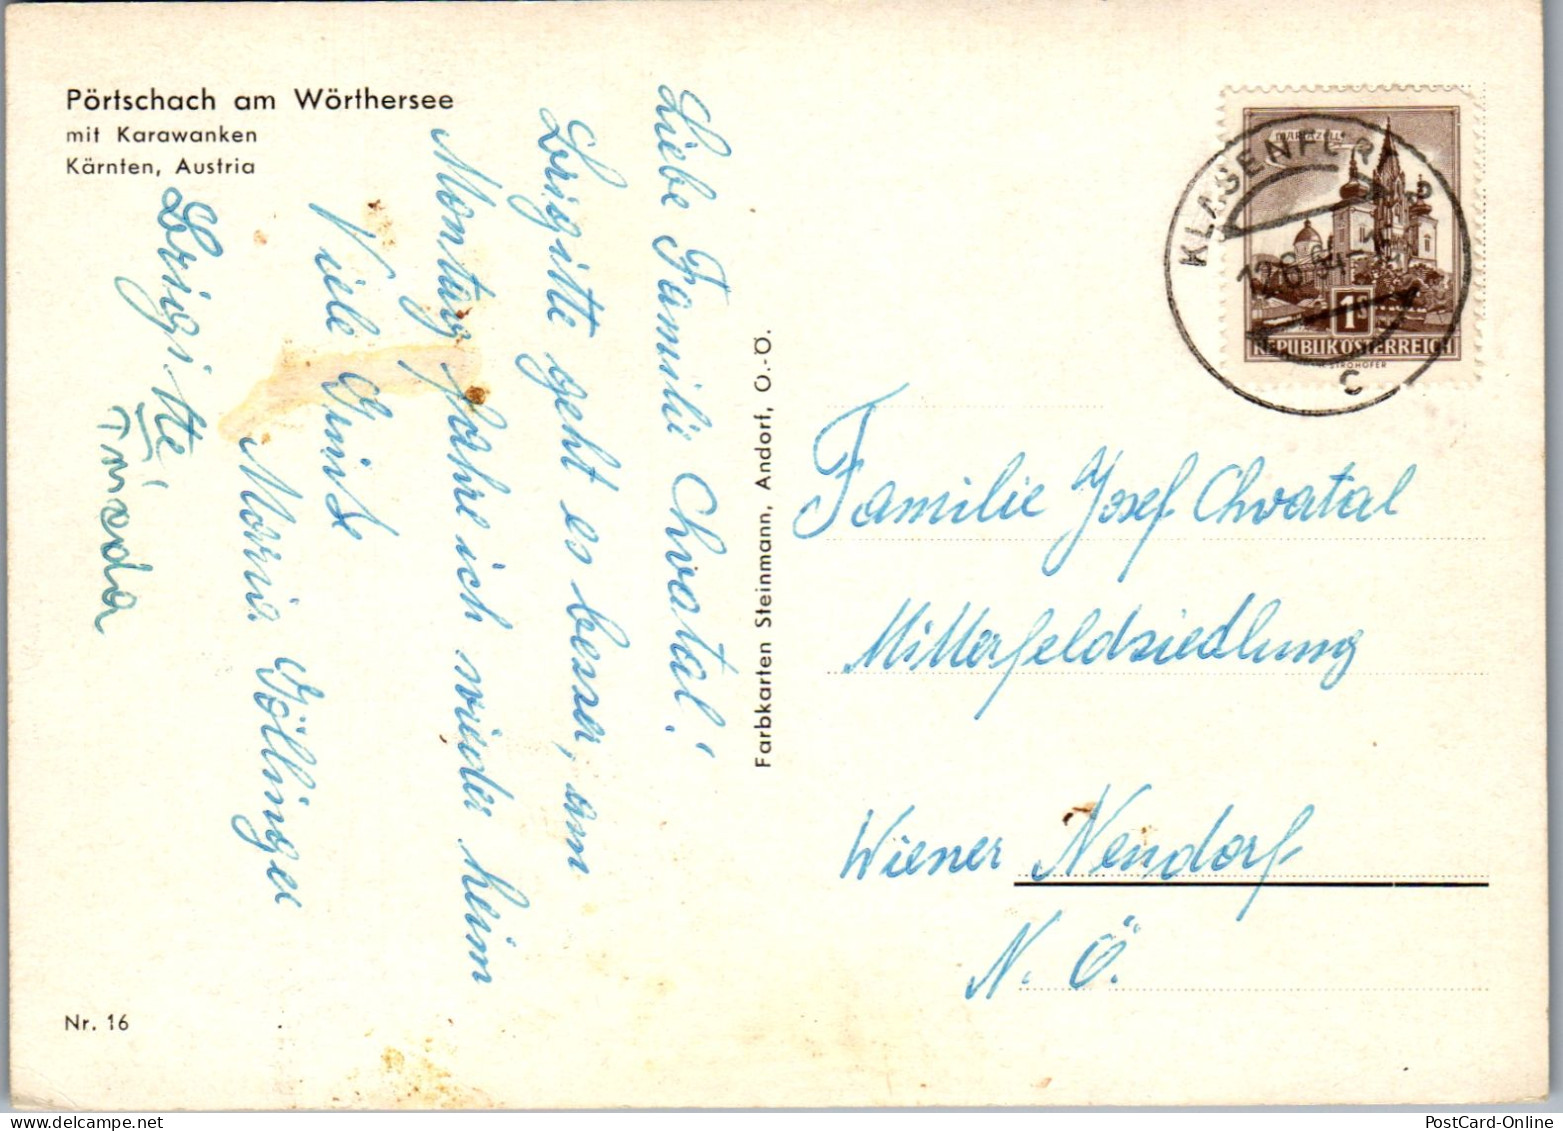 Pörtschach am Wörthersee
mit Karawanken
Kärnten, Austria
Liebe Familie Chvatal!
Brigitte geht es besser, am
Montag fahre ich wieder heim
Viele Grüße
Maria
Brigitte
Farbkarten Steinmann, Andorf, O.-Ö.
KLAGENFURT
12.6.64-
C
MARIAZELL
1S
REPUBLIK ÖSTERREICH
STROHOFER
Familie Josef Chvatal
Mitterfeldsiedlung
Wiener Neudorf
N. Ö.
Nr. 16
PostCard-Online